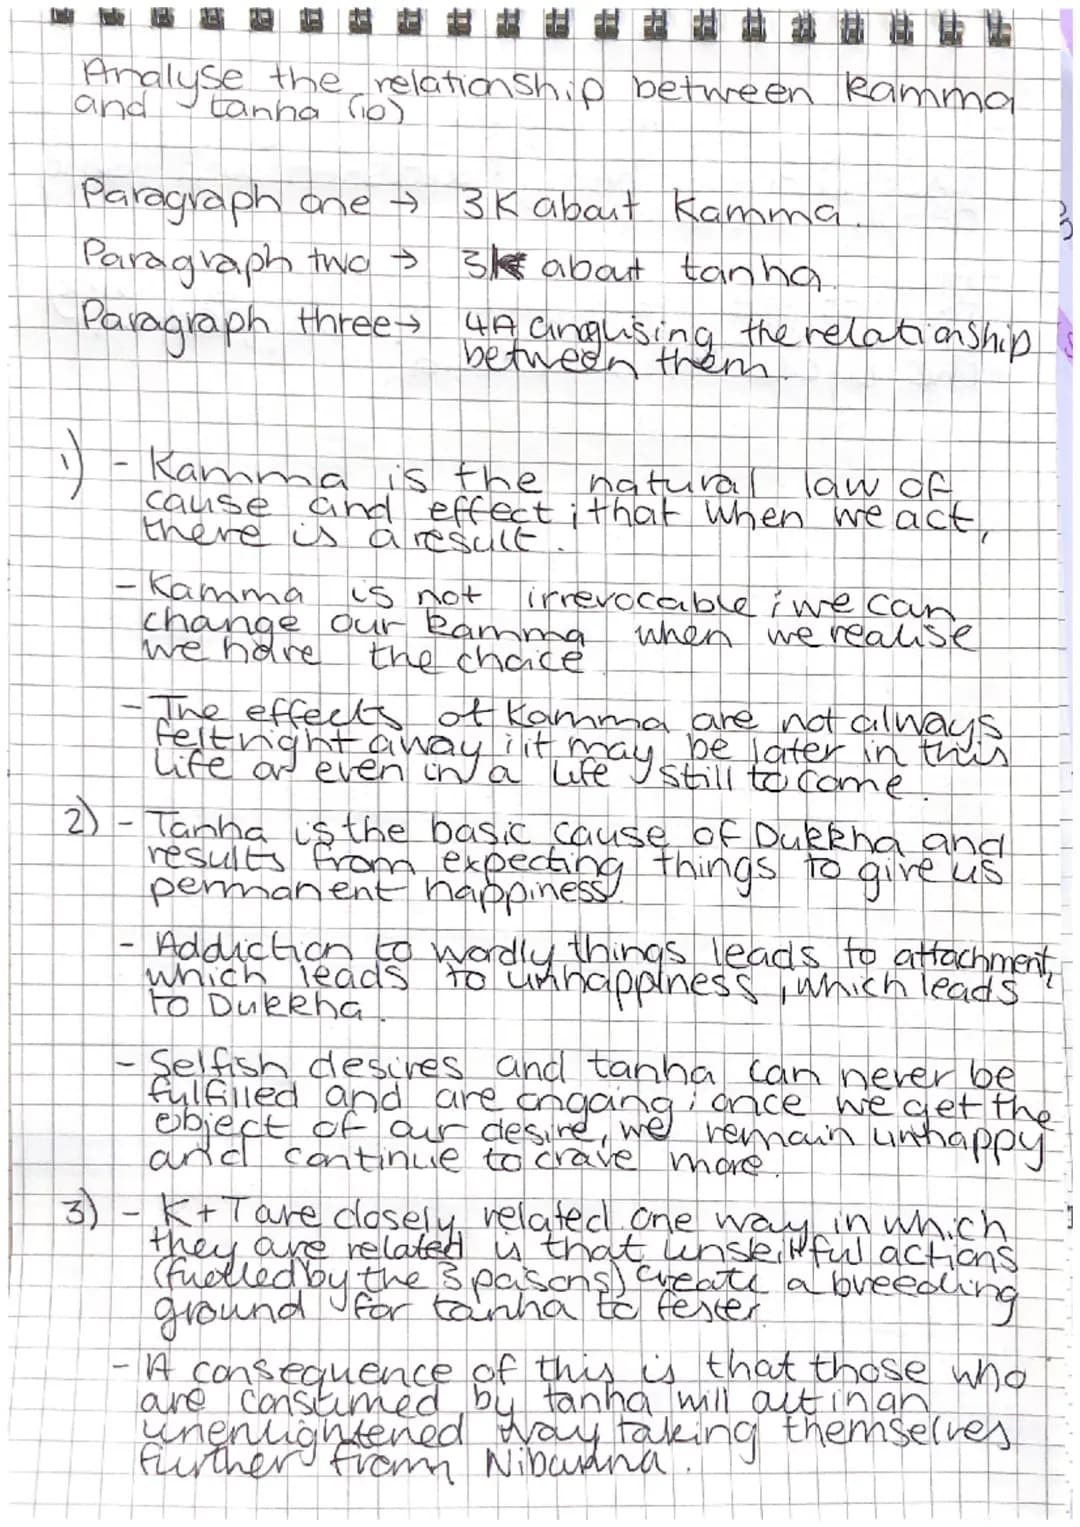 Analyse the relationship between kamma
and tanha (10)
Paragraph one → 3K about Kamma.
Paragraph two → 3K about tanha.
Paragraph three → 4A analysing the relationship
between them.
1) - Kamma is the natural law of
cause and effect ; that when we act,
there is a result.
- Kamma is not irrevocable ; we can
change our kamma when we realise
we have the choice
- The effects of Kamma are not always
felt right away ; it may be later in this
life or even in a life still to come.
2) - Tanha is the basic cause of Dukkha and
results from expecting things to give us
permanent happiness.
- Addiction to wordly things leads to attachment,
which leads to unhappiness, which leads
to Dukkha.
- Selfish desires and tanha can never be
fulfilled and are ongoing ; once we get the
object of our desire, we remain unhappy
and continue to crave more.
3) - K+T are closely related. One way in which
they are related is that unskillful actions
(fuelled by the 3 poisons) create a breeding
ground for tanha to fester
- A consequence of this is that those who
are consumed by tanha will act in an
unenlightened way taking themselves
further from Nibanna.